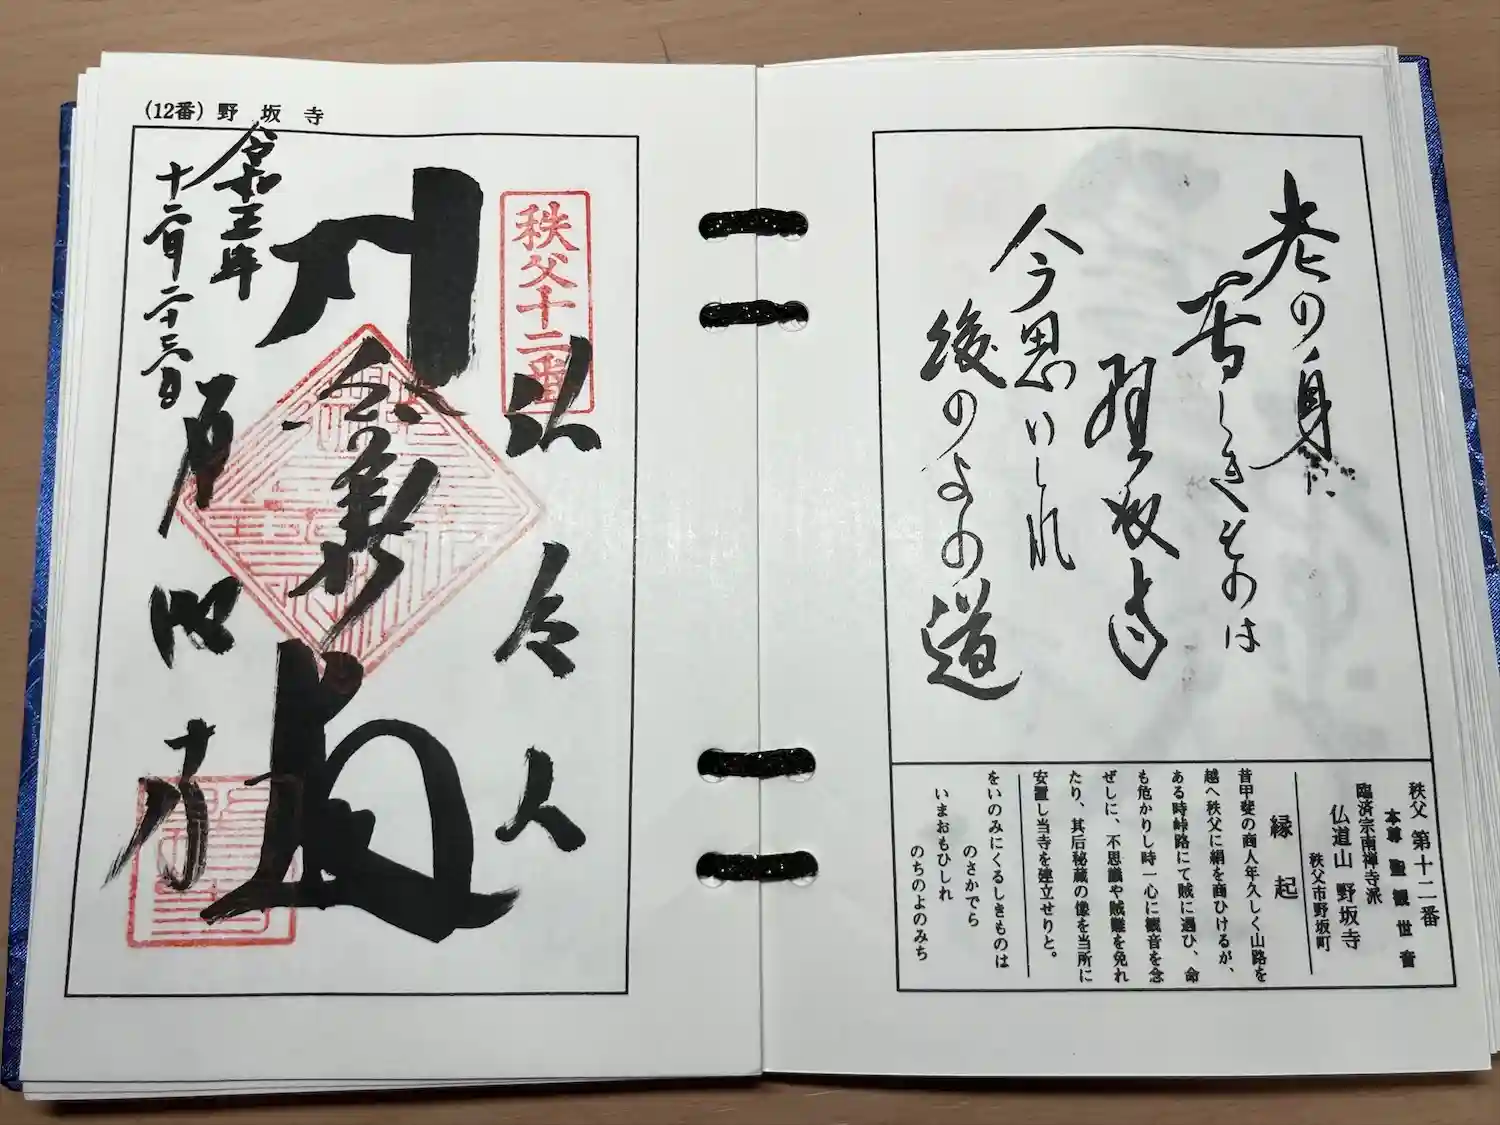 (12番) 野坂寺
秩父十二番
令和五年
十二月二十三日
老の身に
苦しきものは
野坂寺
今思いしれ
後のよの道
秩父 第十二番
本尊 聖観世音
臨済宗南禅寺派
仏道山 野坂寺
秩父市野坂町
縁起
昔甲斐の商人年久しく山路を
越へ秩父に絹を商ひけるが、
ある時峠路にて賊に遇ひ、命
も危かりし時一心に観音を念
ぜしに、不思議や賊難を免れ
たり、其后秘蔵の像を当所に
安置し当寺を建立せりと。
をいのみにくるしきものは
のさかでら
いまおもひしれ
のちのよのみち